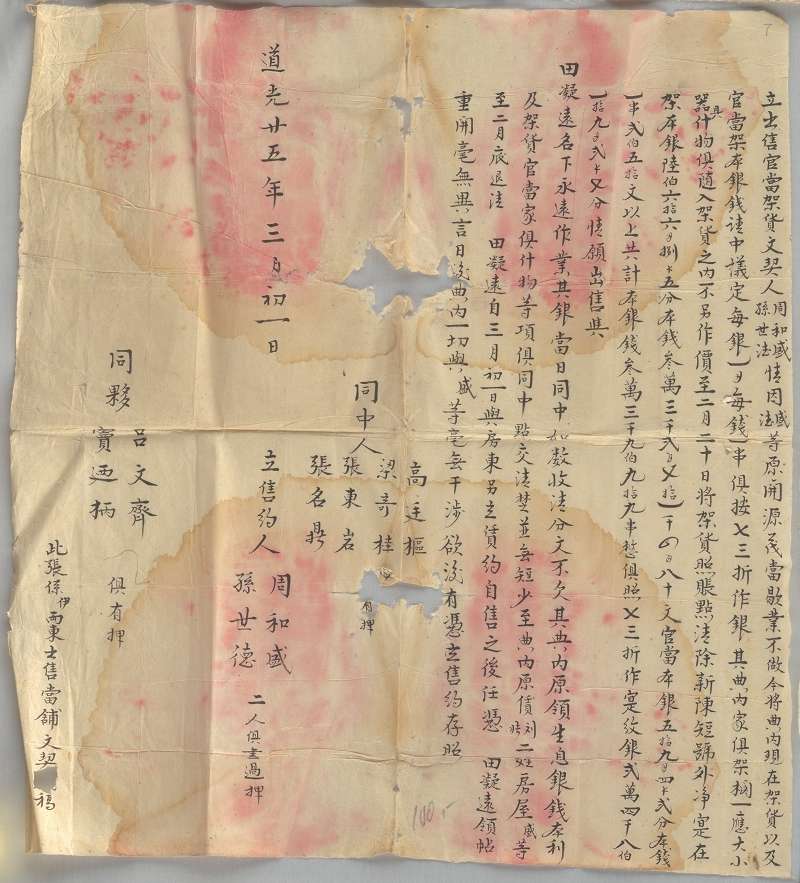 立出售官當架貨文契人周和盛孫世德情因盛德等原開源茂當歇業不做今將典內現在架貨以及
官當架本銀錢請中議定每銀一兩每錢一串俱按七三折作銀其典內家俱架櫊一應大小
器具什物俱隨入架貨之內不另作價至二月二十日將架貨照賬點清除新陳短號外净寔在
架本銀陸伯六拾六兩捌錢五分本錢叁萬三千弍百
八十文官當本銀五拾九兩四錢弍分本錢
一串弍伯五拾文以上共計本銀錢叁萬三千九伯九拾九串
俱照七三折作寔紋銀弍萬四千八伯
一拾九兩弍錢七分情願出售與
田凝遠名下永遠作業其銀當日同中如数收清分文不欠其典內原領生息銀錢本利
及架貨官當家俱什物等項俱同中點交清楚並無短少至典內原賃刘
二姓房屋盛等
至二月底退清 田凝遠自三月初一日與房東另立賃約自售之後任憑 田凝遠領帖
重開毫無異言日後典內一切與盛等毫無干涉欲後有憑立售約存照
道光廿五年三月初一日
同中人
高廷樞
梁奇桂
張東岩
張名
有押
立售約人
周和盛
孫世德
二人俱書過押
同夥
呂文齊
竇廼柄
俱有押
此張係伊両東出售當舖文契
稿
7
100.-